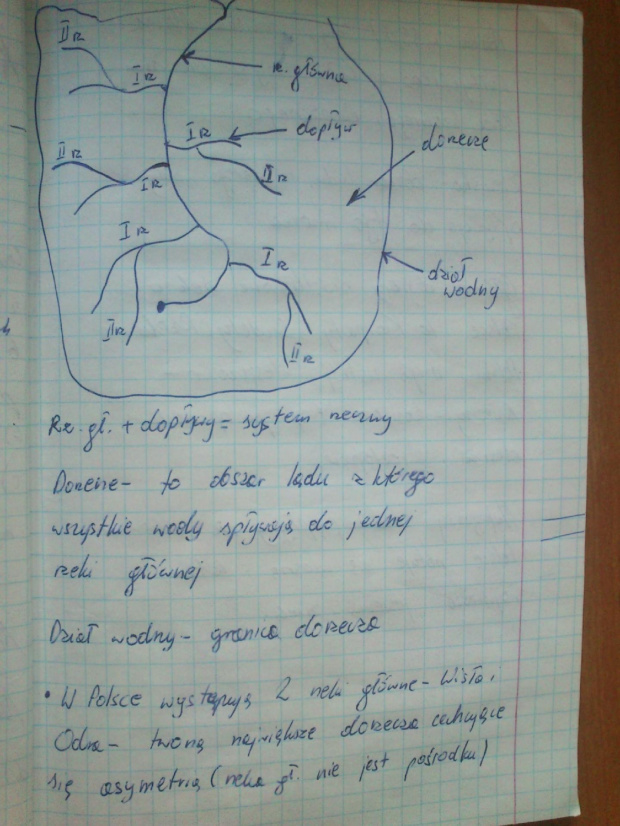 II rz
I rz
rz. główna
I rz
dopływ
dorzecze
II rz
I rz
II rz
I rz
I rz
dział
wodny
II rz
II rz
Rz. gł. + dopływy = system rzeczny
Dorzecze - to obszar lądu z którego
wszystkie wody spływają do jednej
rzeki głównej
Dział wodny - granica dorzecza
• W Polsce występują 2 rzeki główne - Wisła i
Odra - tworzą największe dorzecza cechujące
się asymetrią (rzeka gł. nie jest pośrodku)